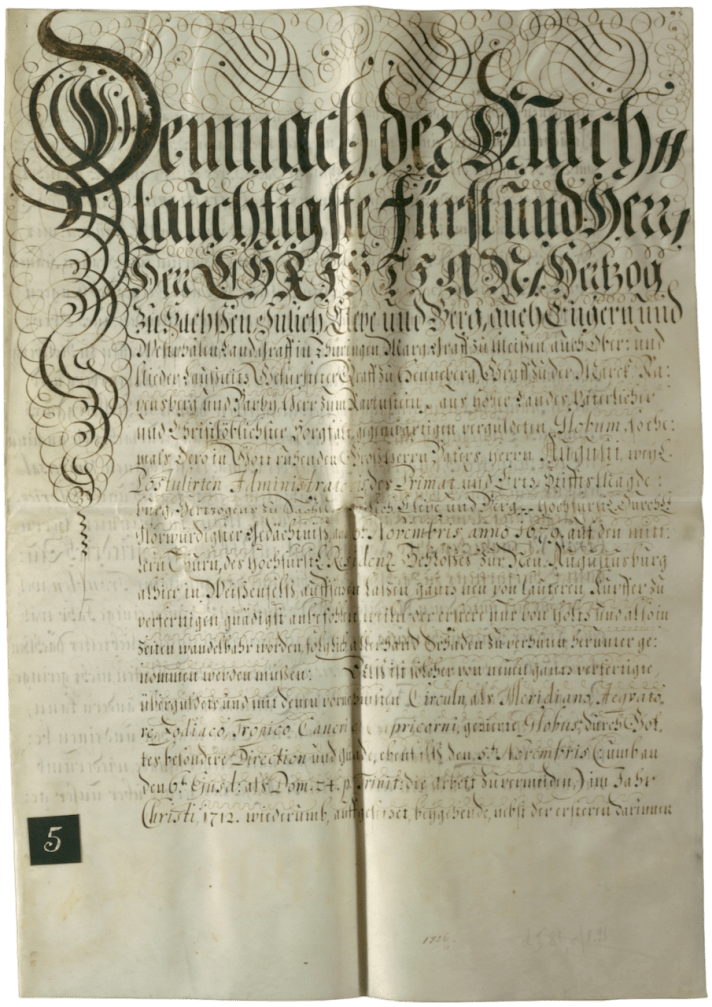 Demnach der Dürch⸗
laüchtigste Fürst und Herr,
Herr CHRISTIAN, Hertzog
zu Sachßen, Jülich, Cleve und Berg, auch Engern und
Westphalen, Landgraff in Thüringen, Marggraff zu Meißen, auch Ober: und
Nieder Laußnitz, Gefürsteter Graff zu Henneberg, Graff zu der Marck, Ra:
vensberg und Barby, Herr zum Ravenstein, aus hoher Landes Väterlicher
und Christlöblichster Sorgfalt, gegenwärtigen vergüldeten Globum, so ehe:
mals Dero in Gott ruhenden Herrn Vaters, Herrn Augusti, weyl.
Postulirten Administratoris des Primat und Ertz Stiffts Magde:
burg, Hertzogens zu Sachßen, Jülich, Cleve und Berg, Hochfürstl. Durchl.
Glorwürdigster Gedächtniß, Novembris anno 1679. auf den mitt:
lern Thurn, des Hochfürstl. Residenz Schloßes zur Neu Augustusburg
alhier in Weißenfelß auffsetzen laßen, gantz neu von lauteren Kupffer zu
verfertigen gnädigst anbefohlen, weilen der erstere nur von Holtz und also in
Zeiten wandelbahr worden, folglich allerhand Schaden zu verhüten herunter ge:
nommen werden müßen: Alß ist solcher von neuen gantz verfertigte
übergüldete und mit denen vornehmsten Circuln, als Meridiano, Aequato:
re, Zodiaco, Tropico Cancri et Capricorni, gezierte Globus, durch Got:
tes besondere Direction und gnade, eben alß den 5ᵗ. Novembris (umb an
den 6ᵗ. Ejusd: alß Dom. 24. p. Trinit: die arbeit zu vermeiden,) im Jahr
Christi, 1712. wiederumb auffgesetzet, beygehende, nebst der ersteren darinnen
5